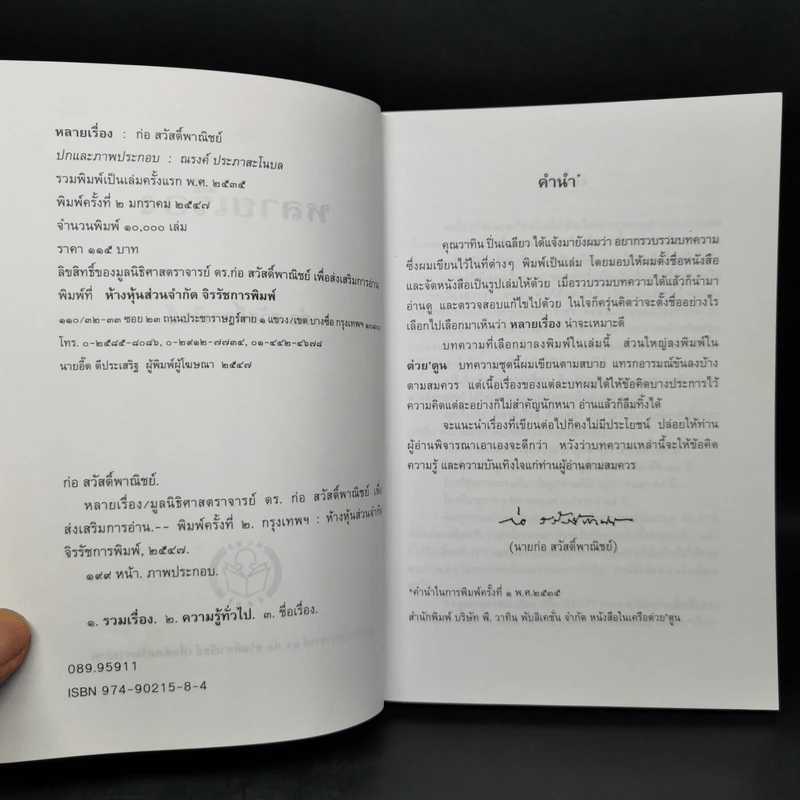 หลายเรื่อง : ก่อ สวัสดิ์พาณิชย์
ปกและภาพประกอบ : ณรงค์ ประภาสะโนบล
รวมพิมพ์เป็นเล่มครั้งแรก พ.ศ. ๒๕๓๕
พิมพ์ครั้งที่ ๒ มกราคม ๒๕๔๗
จำนวนพิมพ์ ๑๐,๐๐๐ เล่ม
ราคา ๑๑๕ บาท
ลิขสิทธิ์ของมูลนิธิศาสตราจารย์ ดร.ก่อ สวัสดิ์พาณิชย์ เพื่อส่งเสริมการอ่าน
พิมพ์ที่ ห้างหุ้นส่วนจำกัด จิรรัชการพิมพ์
๑๑๐/๓๒-๓๓ ซอย ๒๓ ถนนประชาราษฎร์สาย ๑ แขวง/เขต บางซื่อ กรุงเทพฯ ๑๐๘๐๐
โทร. ๐-๒๕๘๕-๘๐๔๖, ๐-๒๙๑๒-๗๗๓๔, ๐๑-๔๔๒-๔๖๗๘
นายอี๊ด ดีประเสริฐ ผู้พิมพ์ผู้โฆษณา ๒๕๔๗
ก่อ สวัสดิ์พาณิชย์.
หลายเรื่อง/มูลนิธิศาสตราจารย์ ดร. ก่อ สวัสดิ์พาณิชย์ เพื่อ
ส่งเสริมการอ่าน.-- พิมพ์ครั้งที่ ๒. กรุงเทพฯ : ห้างหุ้นส่วนจำกัด
จิรรัชการพิมพ์, ๒๕๔๗.
๑๙๙ หน้า. ภาพประกอบ.
๑. รวมเรื่อง. ๒. ความรู้ทั่วไป. ๓. ชื่อเรื่อง.
089.95911
ISBN 974-90215-8-4
คำนำ*
คุณวาทิน ปิ่นเฉลียว ได้แจ้งมายังผมว่า อยากรวบรวมบทความ
ซึ่งผมเขียนไว้ในที่ต่างๆ พิมพ์เป็นเล่ม โดยมอบให้ผมตั้งชื่อหนังสือ
และจัดหนังสือเป็นรูปเล่มให้ด้วย เมื่อรวบรวมบทความได้แล้วก็นำมา
อ่านดู และตรวจสอบแก้ไขไปด้วย ในใจก็ครุ่นคิดว่าจะตั้งชื่ออย่างไร
เลือกไปเลือกมาเห็นว่า หลายเรื่อง น่าจะเหมาะดี
บทความที่เลือกมาลงพิมพ์ในเล่มนี้ ส่วนใหญ่ลงพิมพ์ใน
ต่วย'ตูน บทความชุดนี้ผมเขียนตามสบาย แทรกอารมณ์ขันลงบ้าง
ตามสมควร แต่เนื้อเรื่องของแต่ละบทผมได้ให้ข้อคิดบางประการไว้
ความคิดแต่ละอย่างก็ไม่สำคัญนักหนา อ่านแล้วก็ลืมทิ้งได้
จะแนะนำเรื่องที่เขียนต่อไปก็คงไม่มีประโยชน์ ปล่อยให้ท่าน
ผู้อ่านพิจารณาเอาเองจะดีกว่า หวังว่าบทความเหล่านี้จะให้ข้อคิด
ความรู้ และความบันเทิงใจแก่ท่านผู้อ่านตามสมควร
(นายก่อ สวัสดิ์พาณิชย์)
*คำนำในการพิมพ์ครั้งที่ ๑ พ.ศ.๒๕๓๕
สำนักพิมพ์ บริษัท พี. วาทิน พับลิเคชั่น จำกัด หนังสือในเครือต่วย'ตูน